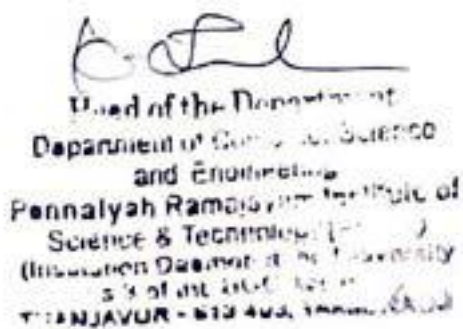 Head of the Department
Department of Computer Science
and Engineering
Ponnaiyah Ramajayam Institute of
Science & Technology
(Institution Deemed to be University
u/s 3 of the UGC Act
THANJAVUR - 613 403, TAMILNADU